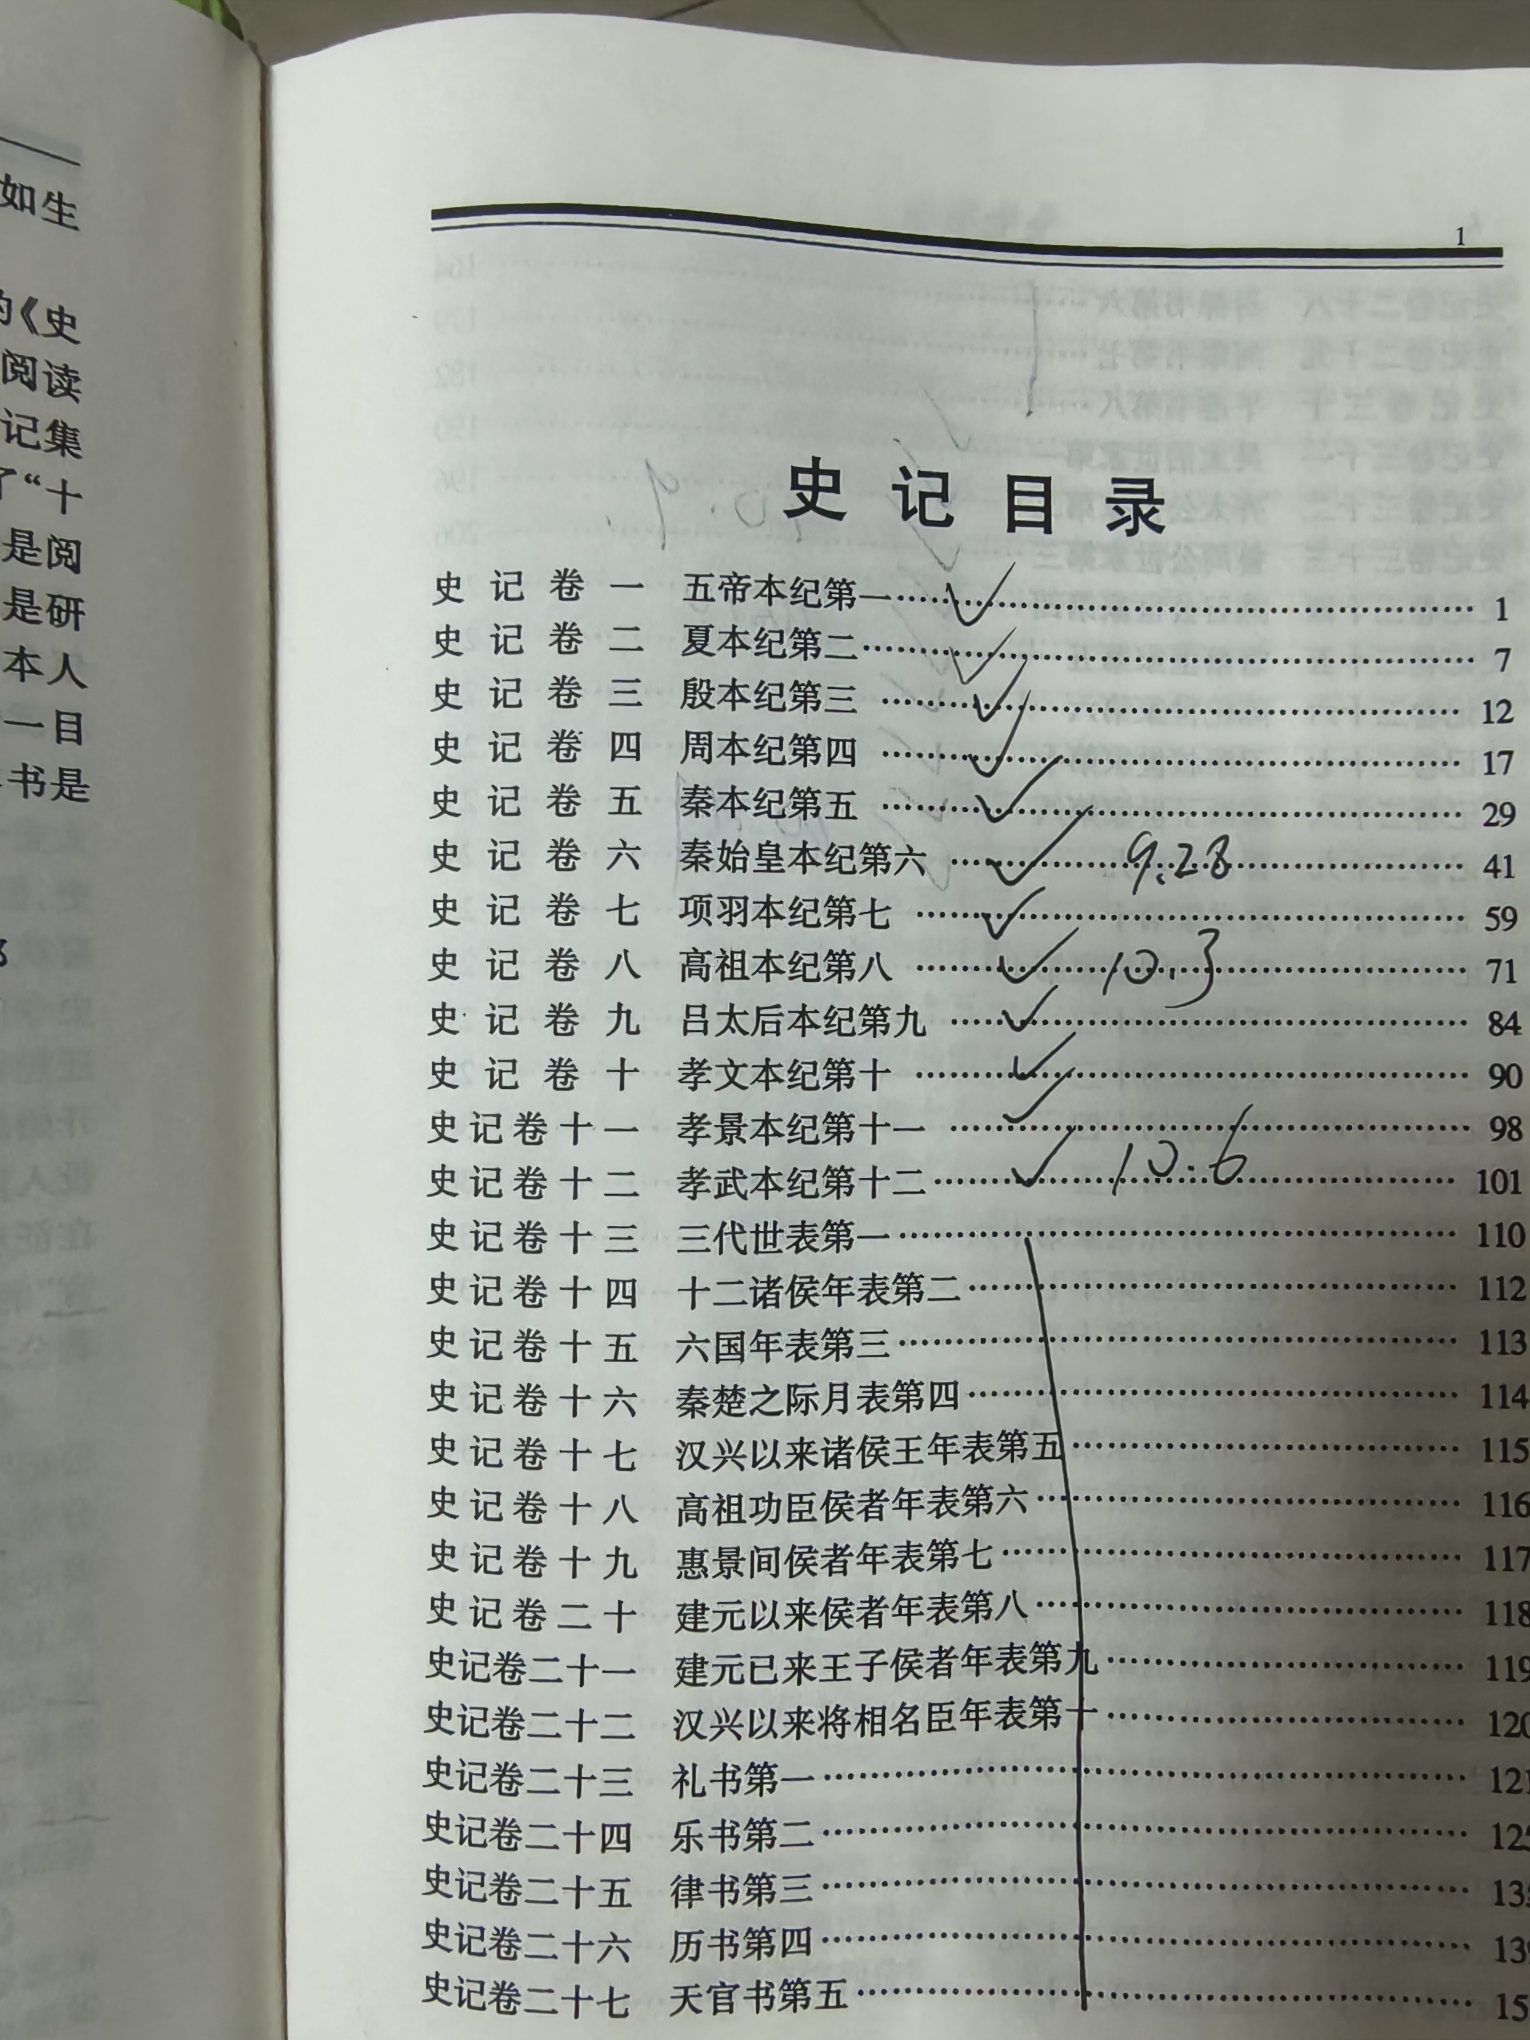 如生
的《史
阅读
记集
了“十
是阅
是研
本人
一目
书是
1
史记目录
史记卷一 五帝本纪第一 …… 1
史记卷二 夏本纪第二 …… 7
史记卷三 殷本纪第三 …… 12
史记卷四 周本纪第四 …… 17
史记卷五 秦本纪第五 …… 29
史记卷六 秦始皇本纪第六 …… 9.28 …… 41
史记卷七 项羽本纪第七 …… 59
史记卷八 高祖本纪第八 …… 10.3 …… 71
史记卷九 吕太后本纪第九 …… 84
史记卷十 孝文本纪第十 …… 90
史记卷十一 孝景本纪第十一 …… 98
史记卷十二 孝武本纪第十二 …… 10.6 …… 101
史记卷十三 三代世表第一 …… 110
史记卷十四 十二诸侯年表第二 …… 112
史记卷十五 六国年表第三 …… 113
史记卷十六 秦楚之际月表第四 …… 114
史记卷十七 汉兴以来诸侯王年表第五 …… 115
史记卷十八 高祖功臣侯者年表第六 …… 116
史记卷十九 惠景间侯者年表第七 …… 117
史记卷二十 建元以来侯者年表第八 …… 118
史记卷二十一 建元已来王子侯者年表第九 …… 119
史记卷二十二 汉兴以来将相名臣年表第十 …… 120
史记卷二十三 礼书第一 …… 121
史记卷二十四 乐书第二 …… 125
史记卷二十五 律书第三 …… 13
史记卷二十六 历书第四 …… 139
史记卷二十七 天官书第五 …… 15